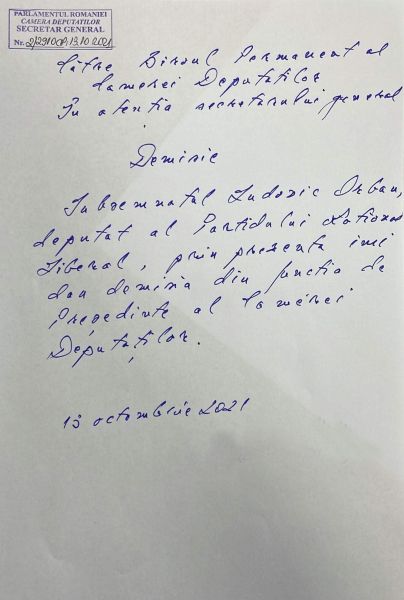 PARLAMENTUL ROMANIEI
CAMERA DEPUTATILOR
SECRETAR GENERAL
Nr. 2/2910 13.10.2021
Către Biroul Permanent al
Camerei Deputaților
În atenția secretarului general
Demisie
Subsemnatul Ludovic Orban,
deputat al Partidului Național
Liberal, prin prezenta îmi
dau demisia din funcția de
Președinte al Camerei
Deputaților.
13 octombrie 2021